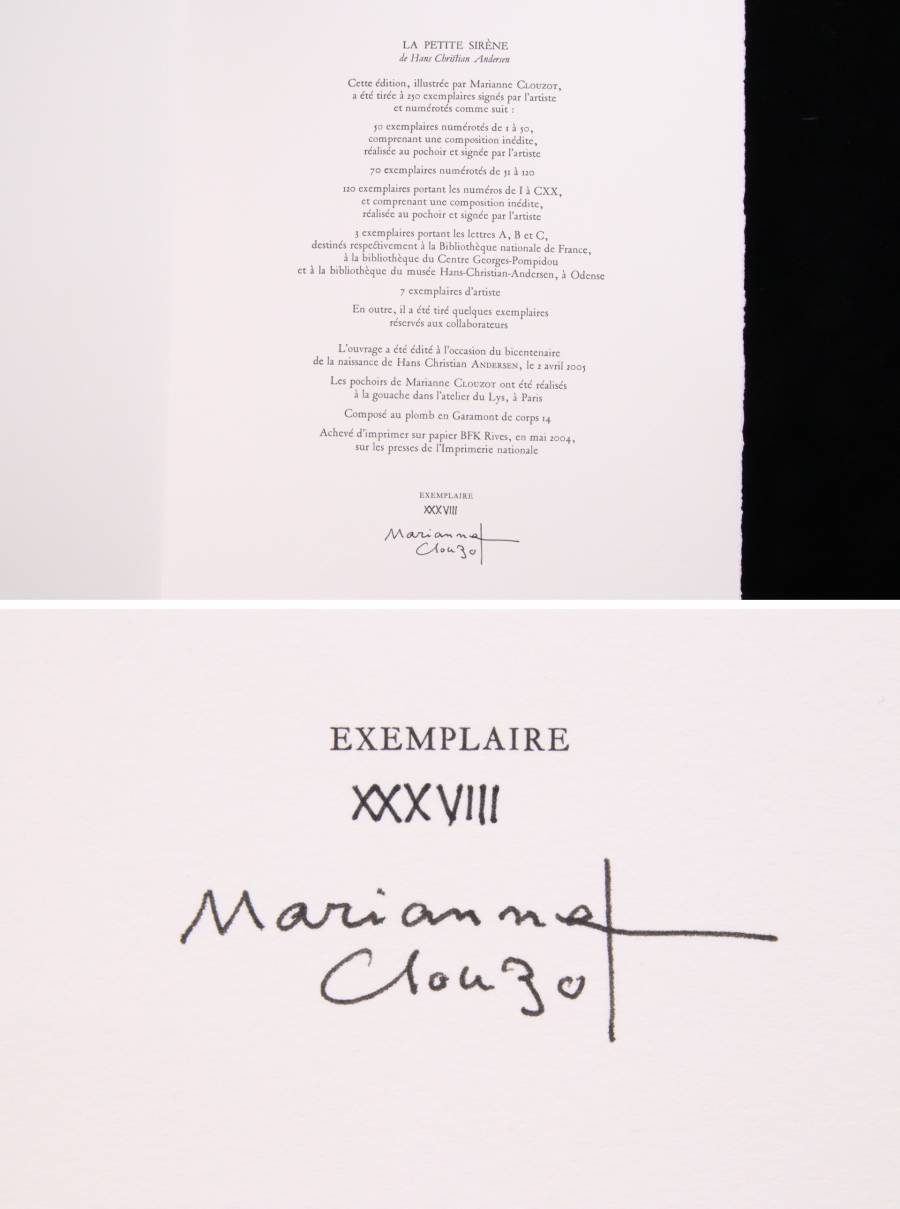 LA PETITE SIRÈNE
de Hans Christian Andersen
Cette édition, illustrée par Marianne CLOUZOT,
a été tirée à 250 exemplaires signés par l'artiste
et numérotés comme suit :
50 exemplaires numérotés de 1 à 50,
comprenant une composition inédite,
réalisée au pochoir et signée par l'artiste
70 exemplaires numérotés de 51 à 120
120 exemplaires portant les numéros de I à CXX,
et comprenant une composition inédite,
réalisée au pochoir et signée par l'artiste
3 exemplaires portant les lettres A, B et C,
destinés respectivement à la Bibliothèque nationale de France,
à la bibliothèque du Centre Georges-Pompidou
et à la bibliothèque du musée Hans-Christian-Andersen, à Odense
7 exemplaires d'artiste
En outre, il a été tiré quelques exemplaires
réservés aux collaborateurs
L'ouvrage a été édité à l'occasion du bicentenaire
de la naissance de Hans Christian ANDERSEN, le 2 avril 2005
Les pochoirs de Marianne CLOUZOT ont été réalisés
à la gouache dans l'atelier du Lys, à Paris
Composé au plomb en Garamont de corps 14
Achevé d'imprimer sur papier BFK Rives, en mai 2004,
sur les presses de l'Imprimerie nationale
EXEMPLAIRE
XXXVIII
Marianne
Clouzot
EXEMPLAIRE
XXXVIII
Marianne
Clouzot